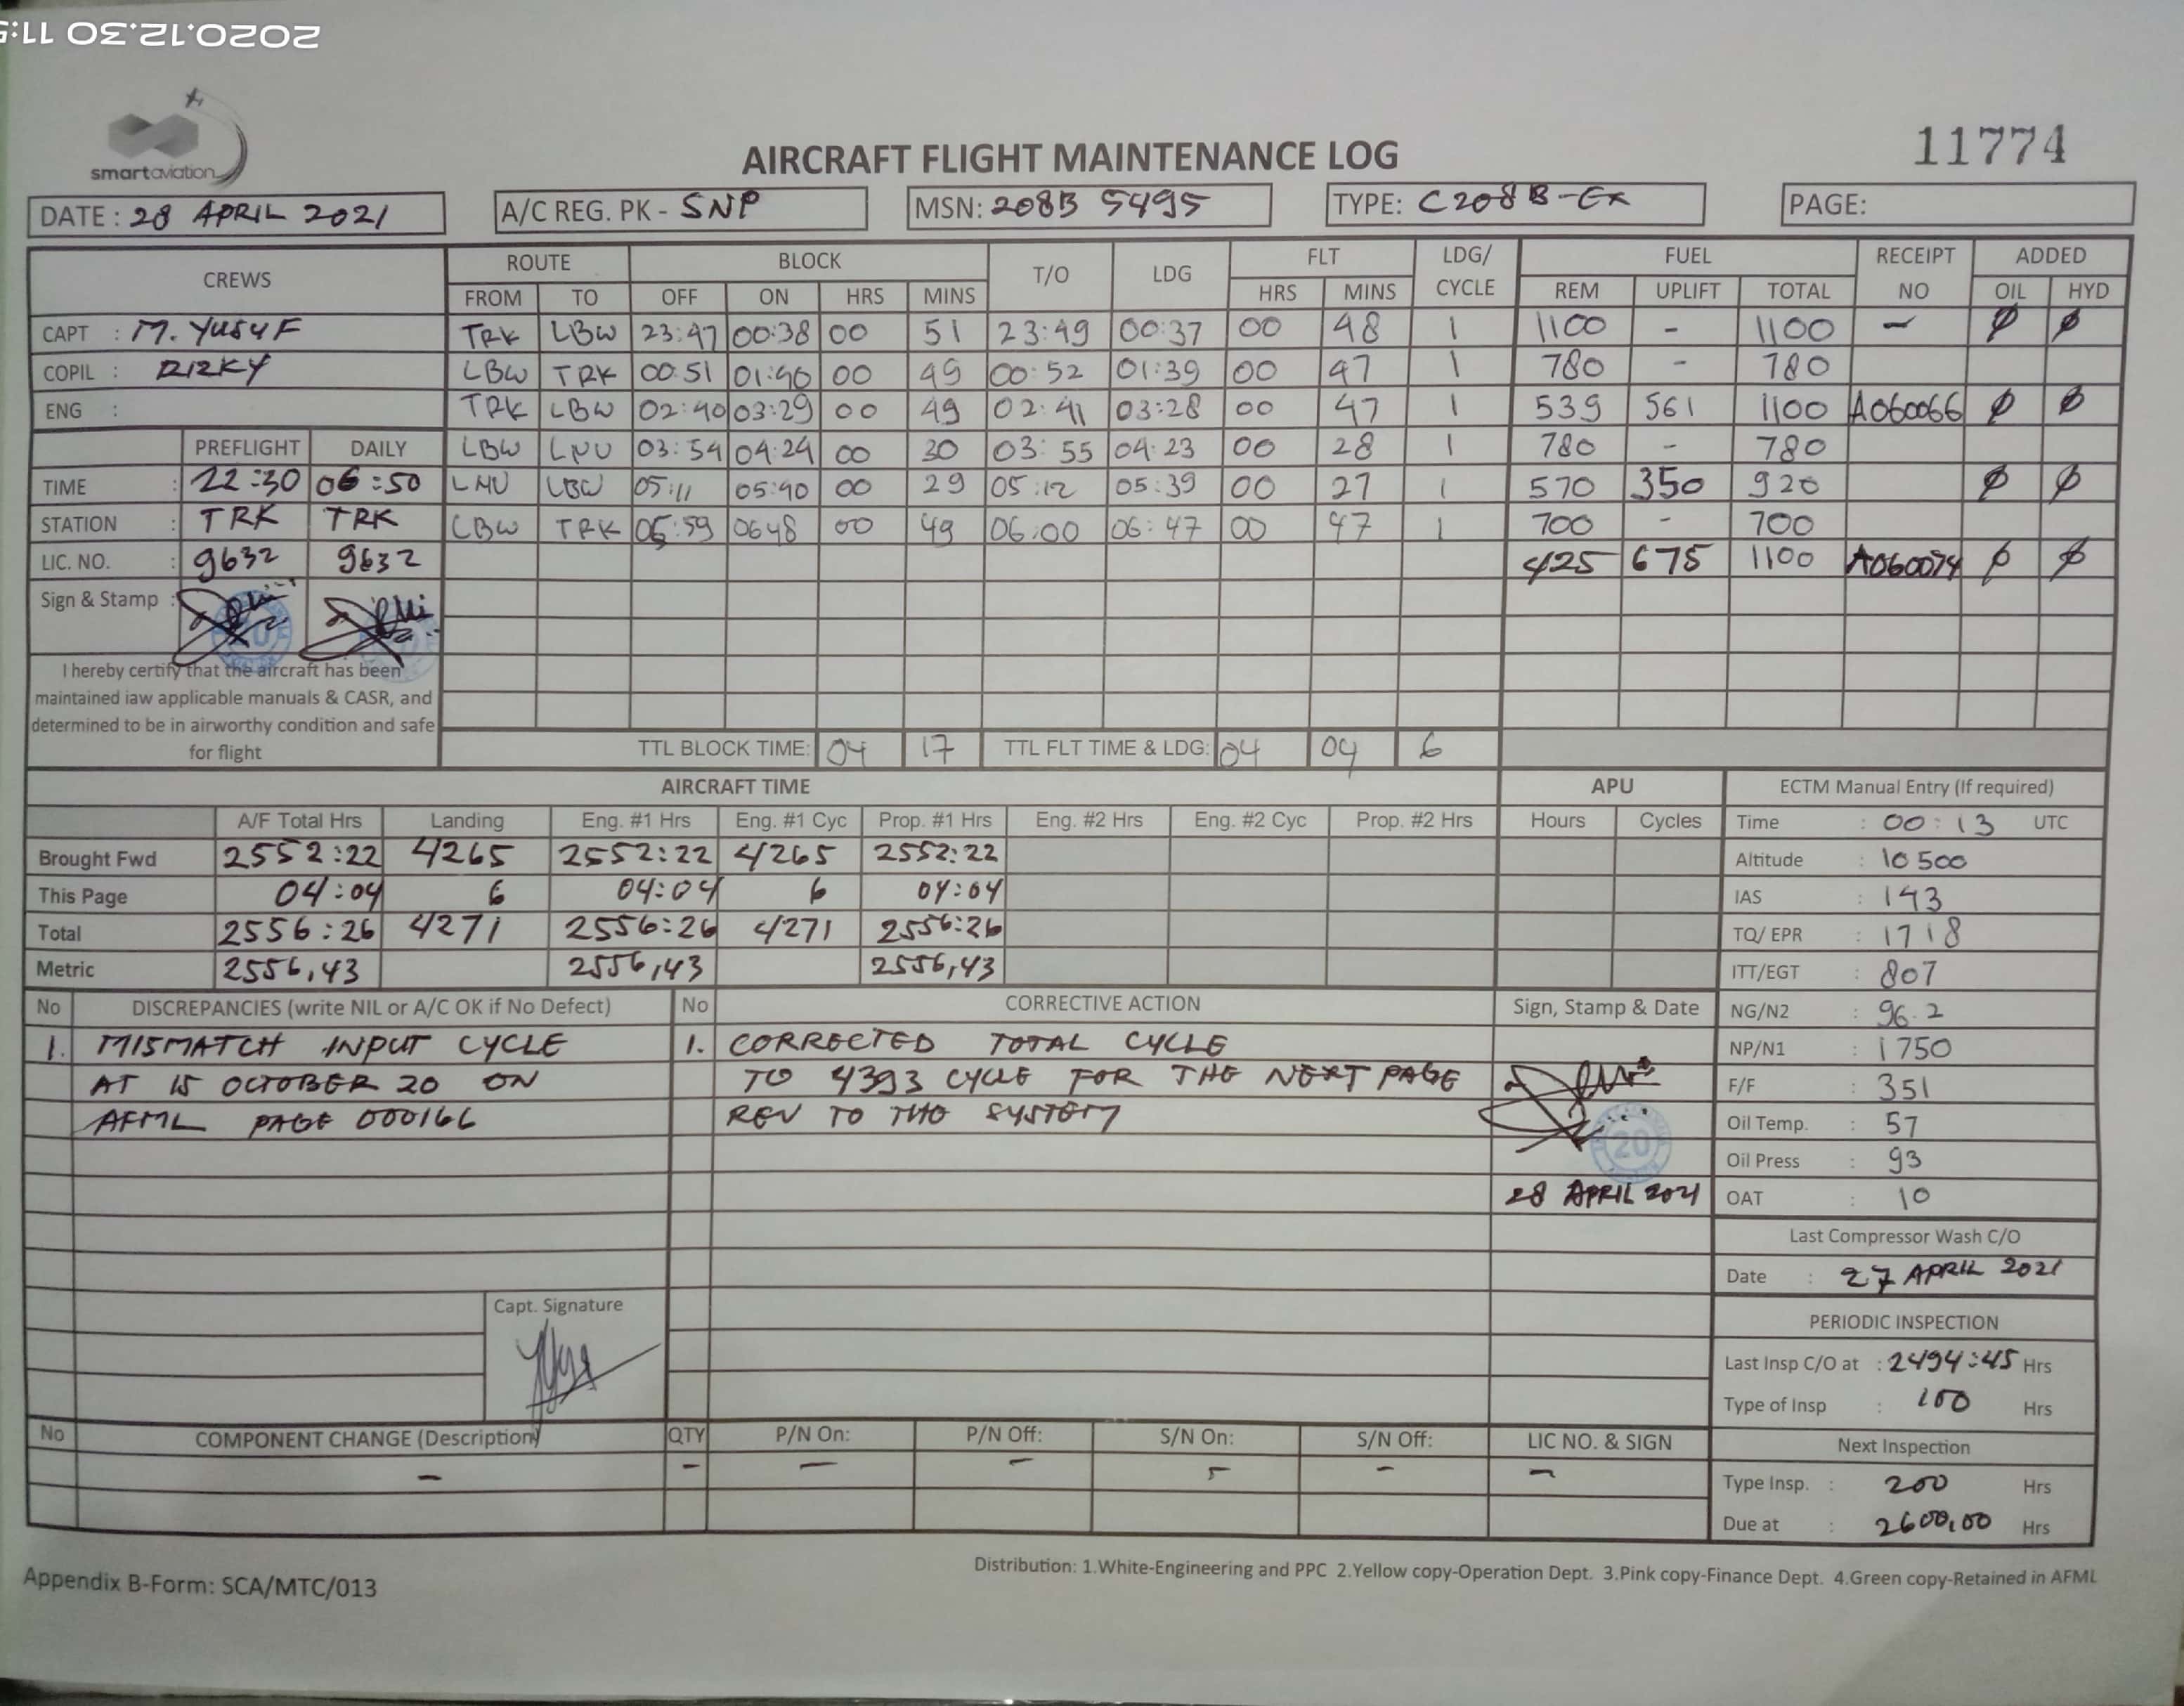 2020.12.30 11:5
smartaviation
AIRCRAFT FLIGHT MAINTENANCE LOG
11774
DATE : 28 APRIL 2021 A/C REG. PK - SNP MSN: 208B 5495 TYPE: C208B-EX PAGE:
CREWS ROUTE BLOCK T/O LDG FLT LDG/ CYCLE FUEL RECEIPT NO ADDED
FROM TO OFF ON HRS MINS HRS MINS REM UPLIFT TOTAL OIL HYD
CAPT : M. YUSUF TRK LBW 23:47 00:38 00 51 23:49 00:37 00 48 1 1100 - 1100 - ∅ ∅
COPIL : RIZKY LBW TRK 00:51 01:40 00 49 00:52 01:39 00 47 1 780 - 780
ENG : TRK LBW 02:40 03:29 00 49 02:41 03:28 00 47 1 539 561 1100 A060066 ∅ ∅
PREFLIGHT DAILY LBW LNU 03:54 04:24 00 30 03:55 04:23 00 28 1 780 - 780
TIME : 22:30 06:50 LNU LBW 05:11 05:40 00 29 05:12 05:39 00 27 1 570 350 920 ∅ ∅
STATION : TRK TRK LBW TRK 05:59 0648 00 49 06:00 06:47 00 47 1 700 - 700
LIC. NO. : 9632 9632 425 675 1100 A060074 ∅ ∅
Sign & Stamp :
I hereby certify that the aircraft has been
maintained iaw applicable manuals & CASR, and
determined to be in airworthy condition and safe
for flight
TTL BLOCK TIME: 04 17 TTL FLT TIME & LDG: 04 04 6
AIRCRAFT TIME APU ECTM Manual Entry (If required)
A/F Total Hrs Landing Eng. #1 Hrs Eng. #1 Cyc Prop. #1 Hrs Eng. #2 Hrs Eng. #2 Cyc Prop. #2 Hrs Hours Cycles Time : 00:13 UTC
Brought Fwd 2552:22 4265 2552:22 4265 2552:22 Altitude : 10500
This Page 04:04 6 04:04 6 04:04 IAS : 143
Total 2556:26 4271 2556:26 4271 2556:26 TQ/ EPR : 1718
Metric 2556,43 2556,43 2556,43 ITT/EGT : 807
No DISCREPANCIES (write NIL or A/C OK if No Defect) No CORRECTIVE ACTION Sign, Stamp & Date NG/N2 : 96.2
1. MISMATCH INPUT CYCLE 1. CORRECTED TOTAL CYCLE NP/N1 : 1750
AT 15 OCTOBER 20 ON TO 4393 CYCLE FOR THE NEXT PAGE F/F : 351
AFML PAGE 000166 REV TO THE SYSTEM Oil Temp. : 57
20
Oil Press : 93
28 APRIL 2021 OAT : 10
Last Compressor Wash C/O
Date : 27 APRIL 2021
Capt. Signature
PERIODIC INSPECTION
Last Insp C/O at : 2494:45 Hrs
Type of Insp : 100 Hrs
No COMPONENT CHANGE (Description) QTY P/N On: P/N Off: S/N On: S/N Off: LIC NO. & SIGN Next Inspection
- - - - - - - Type Insp. : 200 Hrs
Due at : 2600,00 Hrs
Appendix B-Form: SCA/MTC/013
Distribution: 1.White-Engineering and PPC 2.Yellow copy-Operation Dept. 3.Pink copy-Finance Dept. 4.Green copy-Retained in AFML